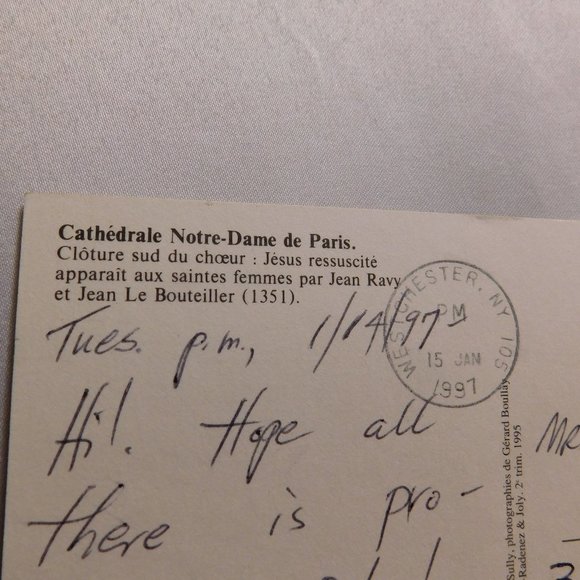 Cathédrale Notre-Dame de Paris.
Clôture sud du chœur : Jésus ressuscité
apparaît aux saintes femmes par Jean Ravy
et Jean Le Bouteiller (1351).
WESTCHESTER, NY 105
PM
15 JAN
1997
Tues. p.m., 1/14/97
Hi! Hope all
there is pro-
MR
Sully, photographies de Gérard Boullay
Radenez & Joly. 2e trim. 1995